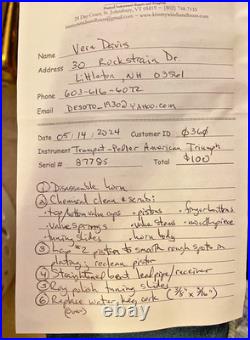 28 Day Court, St. Johnsbury, VT 05819
Name Vera Davis
Address 30 Rockstrain Dr
Littleton, NH 03561
Phone 603-616-6072
Date 05/14/2024 Customer ID 0360
Instrument Trumpet-Pedler American Triumph
Serial # 87785 Total $100
① Disassemble horn
② Chemical clean & scrub:
· top/bottom valve caps · pistons · finger buttons
· valve springs · valve stems · mouthpiece
· tuning slides · horn body
③ #2 piston to smooth rough spots in
plating; reclean piston
④ Straightened bent leadpipe/receiver
⑤ tuning slides
⑥ Replace water key cork (3/8" x 3/16")